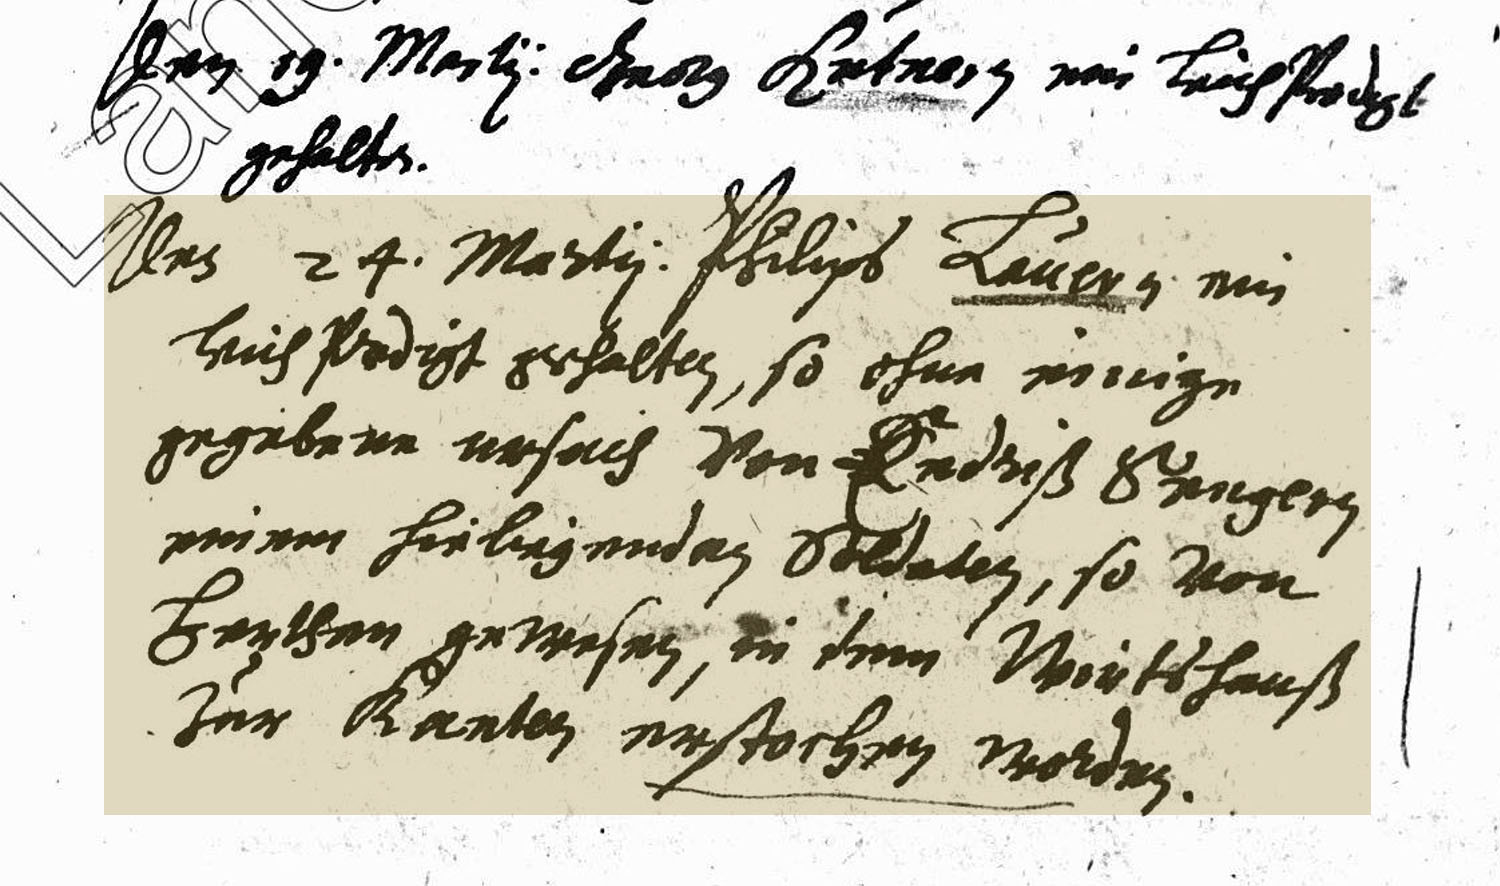 Den 19. Martij: Georg Lutnern ein leich Predigt
gehalten.
Den 24. Martij: Philips Lauern ein
leich Predigt gehalten, so ohne einige
gegebene ursach von Endriß Sengern
einem hieligenden Soldaten, so von
gewesen, in dem Wirtshauß
Zur Kanten erstochen worden.